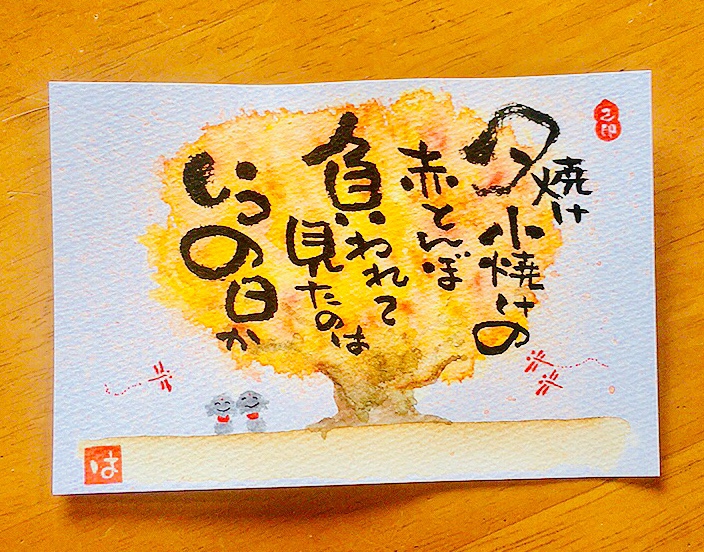 夕焼け
小焼けの
赤とんぼ
負いわれて
見たのは
いつの日か
は